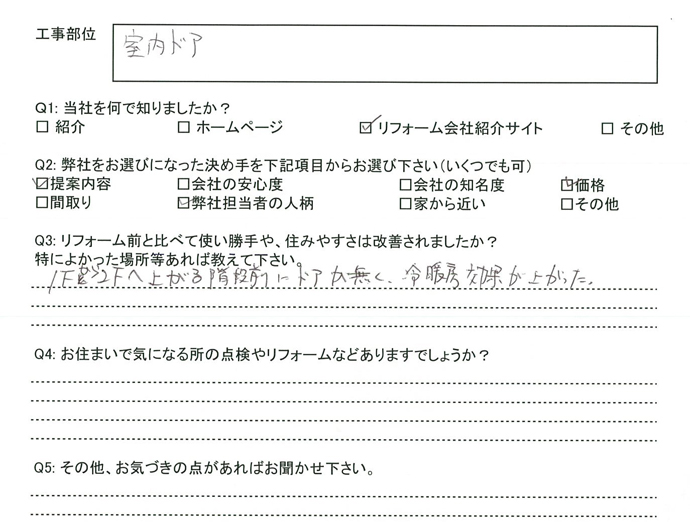 工事部位
室内ドア
Q1: 当社を何で知りましたか？
□ 紹介 □ ホームページ ☑ リフォーム会社紹介サイト □ その他
Q2: 弊社をお選びになった決め手を下記項目からお選び下さい(いくつでも可)
☑提案内容 □会社の安心度 □会社の知名度 ☑価格
□間取り ☑弊社担当者の人柄 □家から近い □その他
Q3: リフォーム前と比べて使い勝手や、住みやすさは改善されましたか？
特によかった場所等あれば教えて下さい。
1Fから2Fへ上がる階段前にドアが無く、冷暖房効果が上がった。
Q4: お住まいで気になる所の点検やリフォームなどありますでしょうか？
Q5: その他、お気づきの点があればお聞かせ下さい。